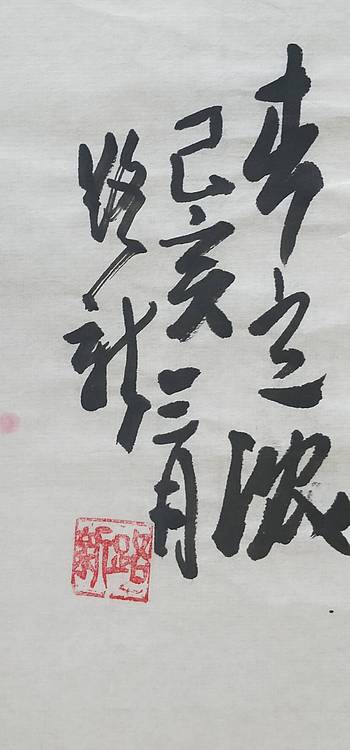 春之浓
己亥三月
路新
路新